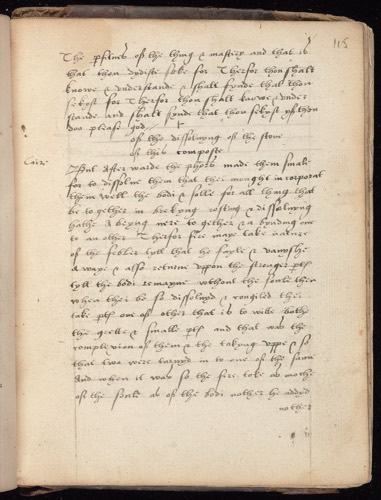 115
The perfitnes off the thing & mastery and that is
that thou dydiste seke for Therfor thou shalt
knowe & understande & shalt fynde that thou
sekyst for Therfor thou shalt knowe & under
stande and shalt fynde that thou sekyst yf thou
doo please god
of the dissolvyng of the stone
of this composte
But after warde the phors made them smale
for to dissolve them that thei myught incorporat
them well the bodi & solle for all thyng that
be to gether in brekyng rosting & dissolvyng
hathe a beyng nere to gether & a byndyng one
to an other Therfor fire maye take nature
of the febler tyll that he fayle & vanyshe
awaye & also retourne uppon the stronger pts
tyll the bodi remayne without the soule then
when thei be so dissolvyd & congilid thei
take pts one of other that is to wite bothe
the grette & smalle pts and that was the
complexion of them & the takyng uppe & so
that two were turnyd in to one of the same
And when it was so the fire toke as moche
of the soule as of the bodi nother he added
nother